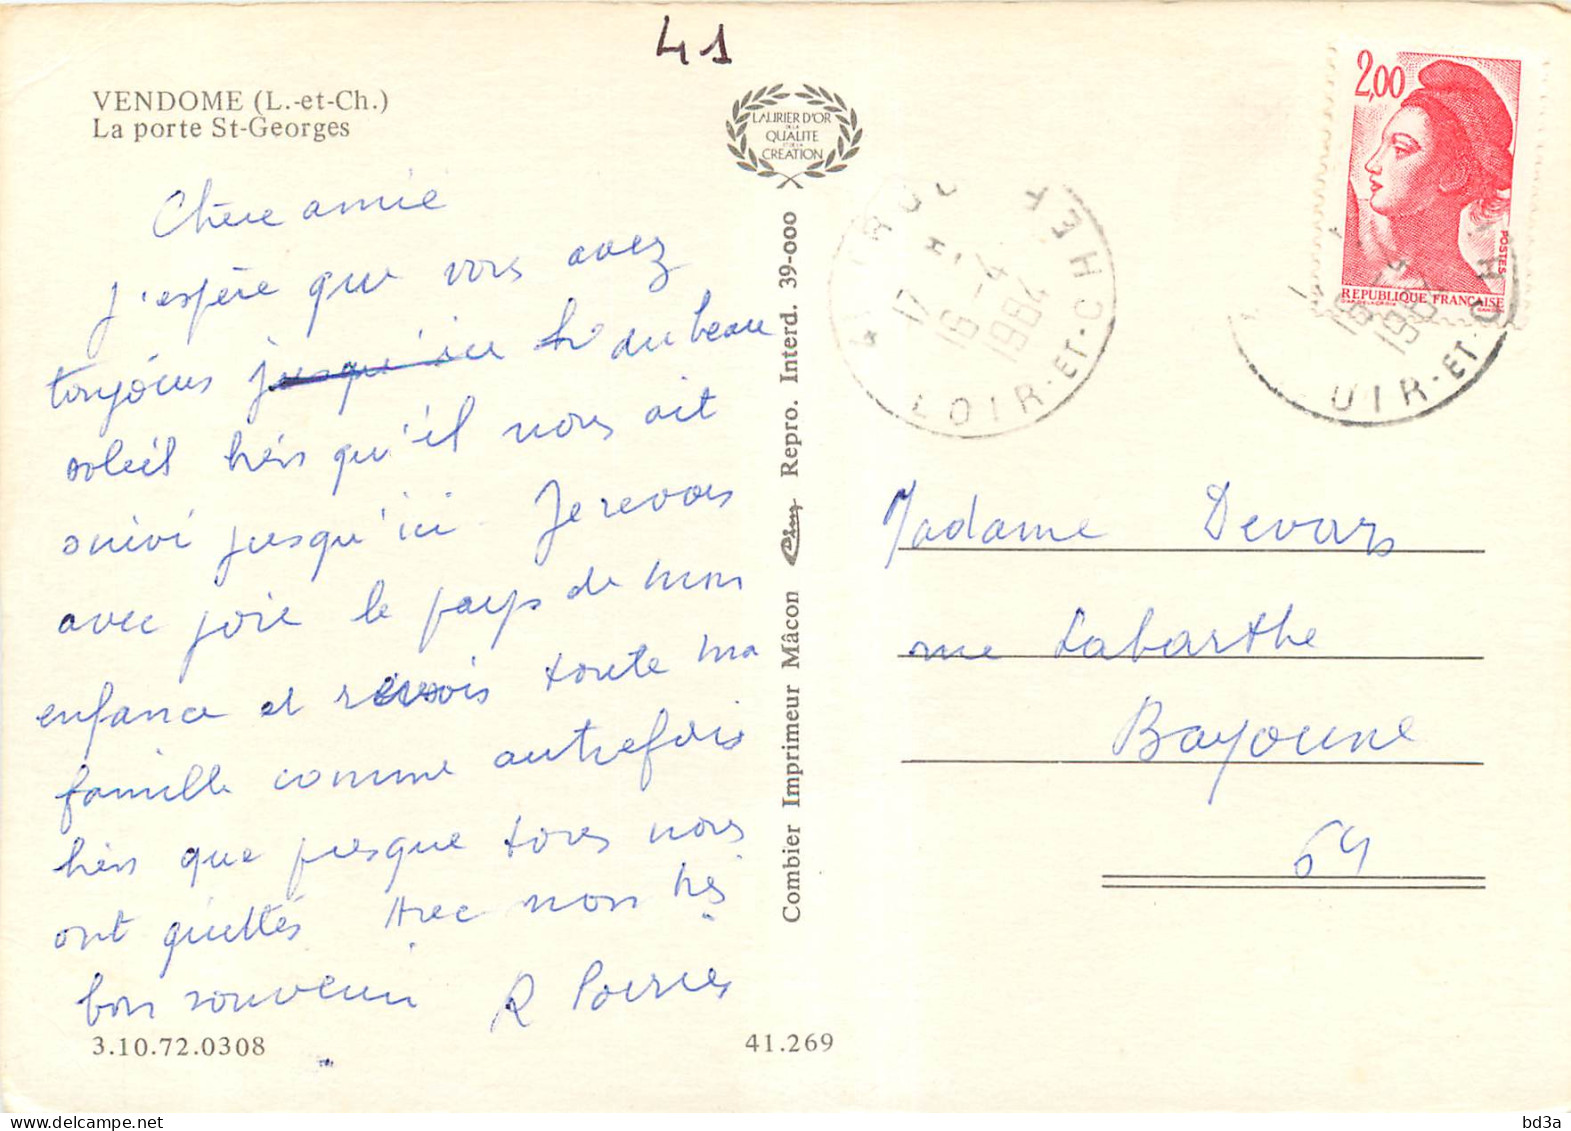 41
VENDOME (L.-et-Ch.)
La porte St-Georges
LAURIER D'OR
DE LA
QUALITE
ET DE LA
CREATION
2,00
POSTES
REPUBLIQUE FRANÇAISE
17 H.
16 - 4
1984
LOIR-ET-CHER
16
198
OIR-ET-CH
Chère amie
J'espère que vous avez
toujours jusqu'ici du beau
soleil bien qu'il nous ait
suivi jusqu'ici. Je revois
avec joie le pays de mon
enfance et revois toute ma
famille comme autrefois
bien que presque tous nous
ont quittés Avec mon très
bon souvenir R
3.10.72.0308
41.269
Combier Imprimeur Mâcon Cim Repro. Interd. 39-000
Madame Devars
rue Labarthe
Bayonne
64
bd3a